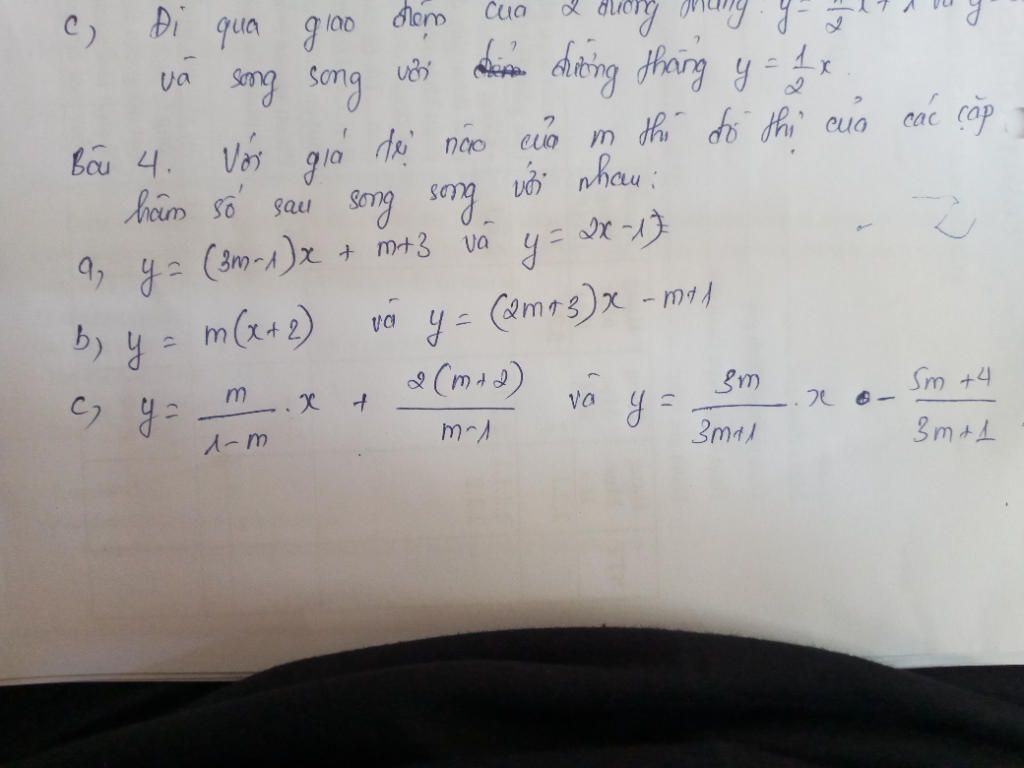 c, Đi qua giao điểm của 2 đường thẳng: y =
và song song với đường thẳng y = 1/2 x.
Bài 4. Với giá trị nào của m thì đồ thị của các cặp
hàm số sau song song với nhau:
a, y = (3m-1)x + m+3 và y = 2x -1
b, y = m(x+2) và y = (2m+3)x -m+1
c, y = m/(1-m) . x + 2(m+2)/(m-1) và y = 3m/(3m+1) . x - (5m+4)/(3m+1)